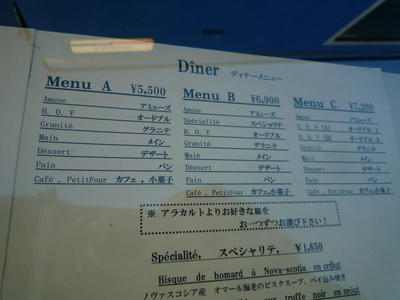 Dîner ディナーメニュー
Menu A ¥5,500
Amuse アミューズ
H. O. V オードブル
Granité グラニテ
Main メイン
Déssert デザート
Pain パン
Café , PetitFour カフェ , 小菓子
Menu B ¥6,900
Amuse アミューズ
Spécialité スペシャリテ
H. O. V オードブル
Granité グラニテ
Main メイン
Déssert デザート
Pain パン
Café , PetitFour カフェ,小菓子
Menu C ¥7,200
Amuse アミューズ
H. O. V (1) オードブル 1
H. O. V (2) オードブル 2
Granité グラニテ
Main メイン
Déssert デザート
Pain パン
Café , PetitFour カフェ,小菓子
※ アラカルトよりお好きな皿を
お一つずつお選び下さい!
Spécialité, スペシャリテ, ¥1,650
Bisque de homard à Nova-scotia en croût
ノヴァスコシア産 オマール海老のビスクスープ、パイ包み焼き
truffe noir en croût